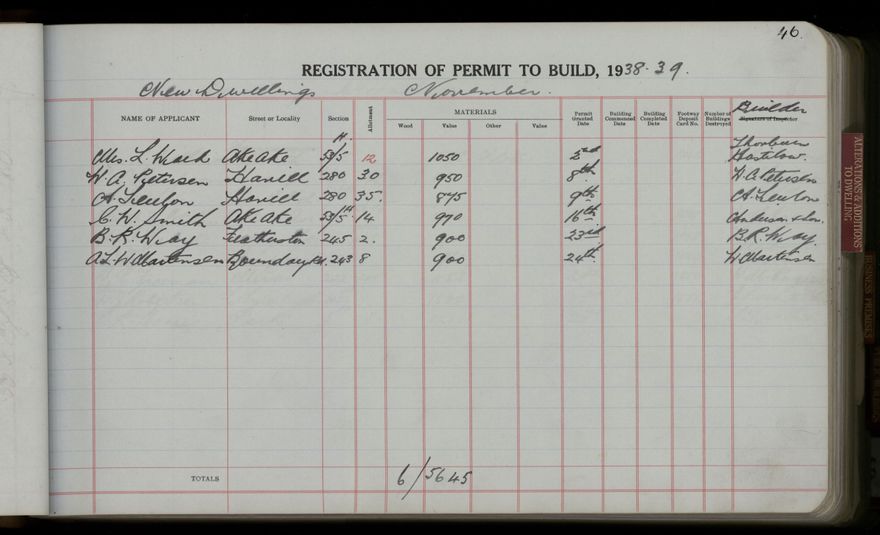 46.
REGISTRATION OF PERMIT TO BUILD, 1938-39.
New Dwellings November.
NAME OF APPLICANT Street or Locality Section Allotment MATERIALS Wood Value Other Value Permit Granted Date Building Commenced Date Building Completed Date Footway Deposit Card No. Number of Buildings Destroyed Builder Signature of Inspector
Mrs. L. Ward Ake Ake 12 1050 2nd
W. A. Petersen 280 30 950 8th W. A. Petersen
280 35. 875 9th
C. W. Smith Ake Ake 14 970 16th Anderson & Son.
B. R. Way Featherston 245 2. 900 23rd B. R. Way.
A. L. W Martensen Boundary Rd. 243 8 900 24th W Martensen
TOTALS 6/5645
ALTERATIONS & ADDITIONS
TO DWELLING
BUSINESS PREMISES